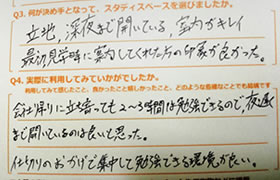 Q3. 何が決め手となって、スタディスペースを選びましたか。
立地、深夜まで開いている、室内がキレイ
最初見学時に案内してくれた方の印象が良かった。
Q4. 実際に利用してみていかがでしたか。
利用してみて感じたこと、良かったこと・嬉しかったこと、どのような些細なことでも結構です
会社帰りに立ち寄っても2〜3時間は勉強できるので、夜遅く
まで開いているのは良いと思った。
仕切りのおかげで集中して勉強できる環境が良い。